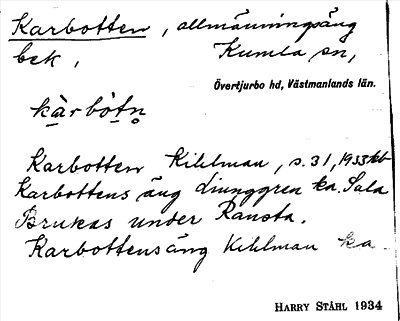 Karbotten, allmänningsäng
bek, Kumla sn,
Övertjurbo hd, Västmanlands län.
kàrbòtn̥
Karbotten Kihlman, s. 31, 1933 kb
Karbottens äng Liunggren ka. Sala
Brukas under Ransta.
Karbottensäng Kihlman ka.
HARRY STÅHL 1934